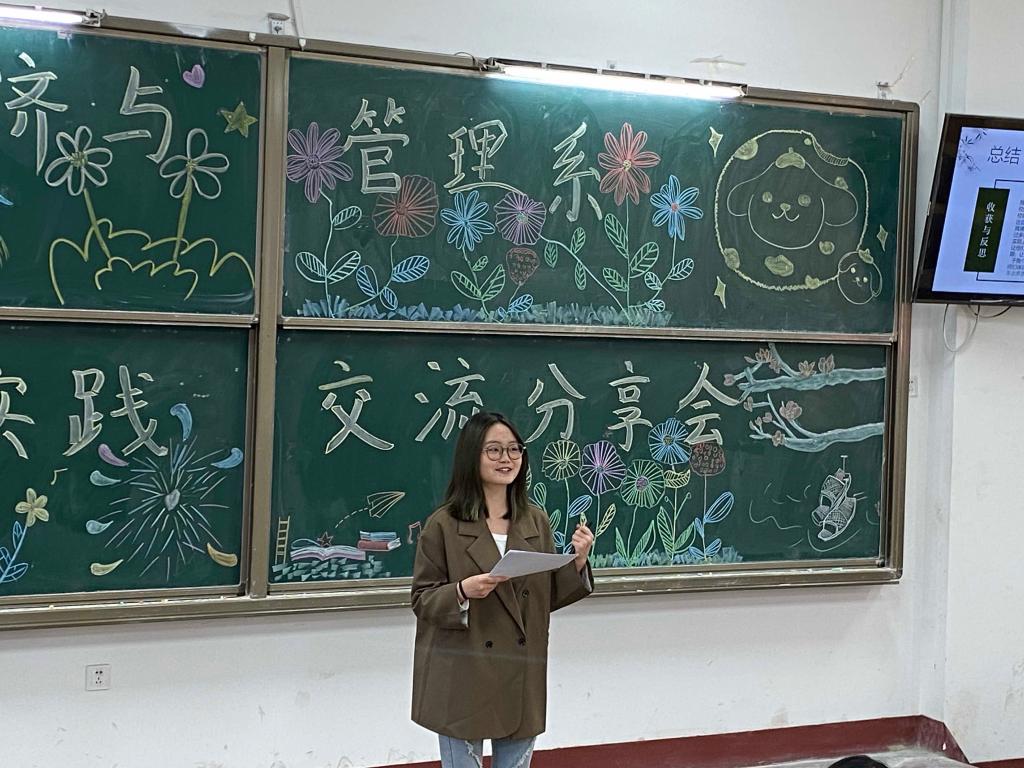 济与
管理系
实践
交流分享会
总结
收获与反思